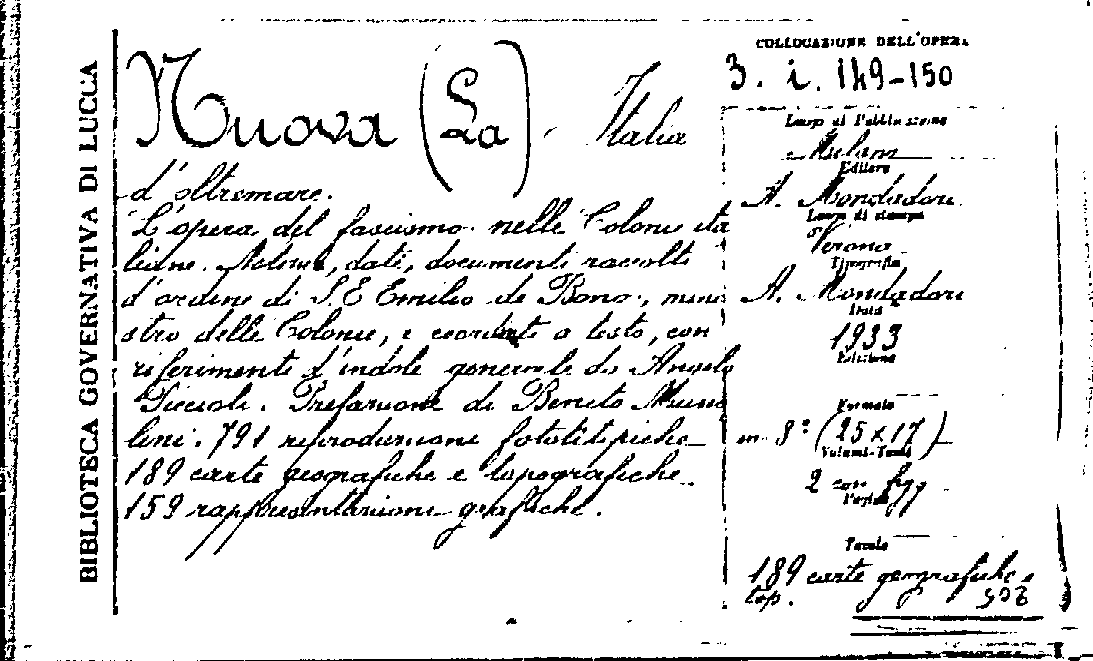 BIBLIOTECA GOVERNATIVA DI LUCCA
Nuova (La) - Italia
d'oltremare.
L'opera del fascismo nelle Colonie ita
liane. Notizie, dati, documenti raccolti
d'ordine di S. E. Emilio de Bono, mini
stro delle Colonie, e coordinati a testo, con
riferimenti d'indole generale da Angelo
Piccioli. Prefazione di Benito Musso
lini. 791 riproduzioni fototipiche
189 carte geografiche e topografiche
159 rappresentazioni grafiche.
COLLOCAZIONE DELL'OPERA
3. i. 149-150
Luogo di Pubblicazione
Milano
Editore
A. Mondadori
Luogo di stampa
Verona
Tipografia
A. Mondadori
Data
1933
Edizione
Formato
in 8° (25x17)
Volumi-Tomi
2 con figg
Pagine
Tavole
189 carte geografiche e
top.